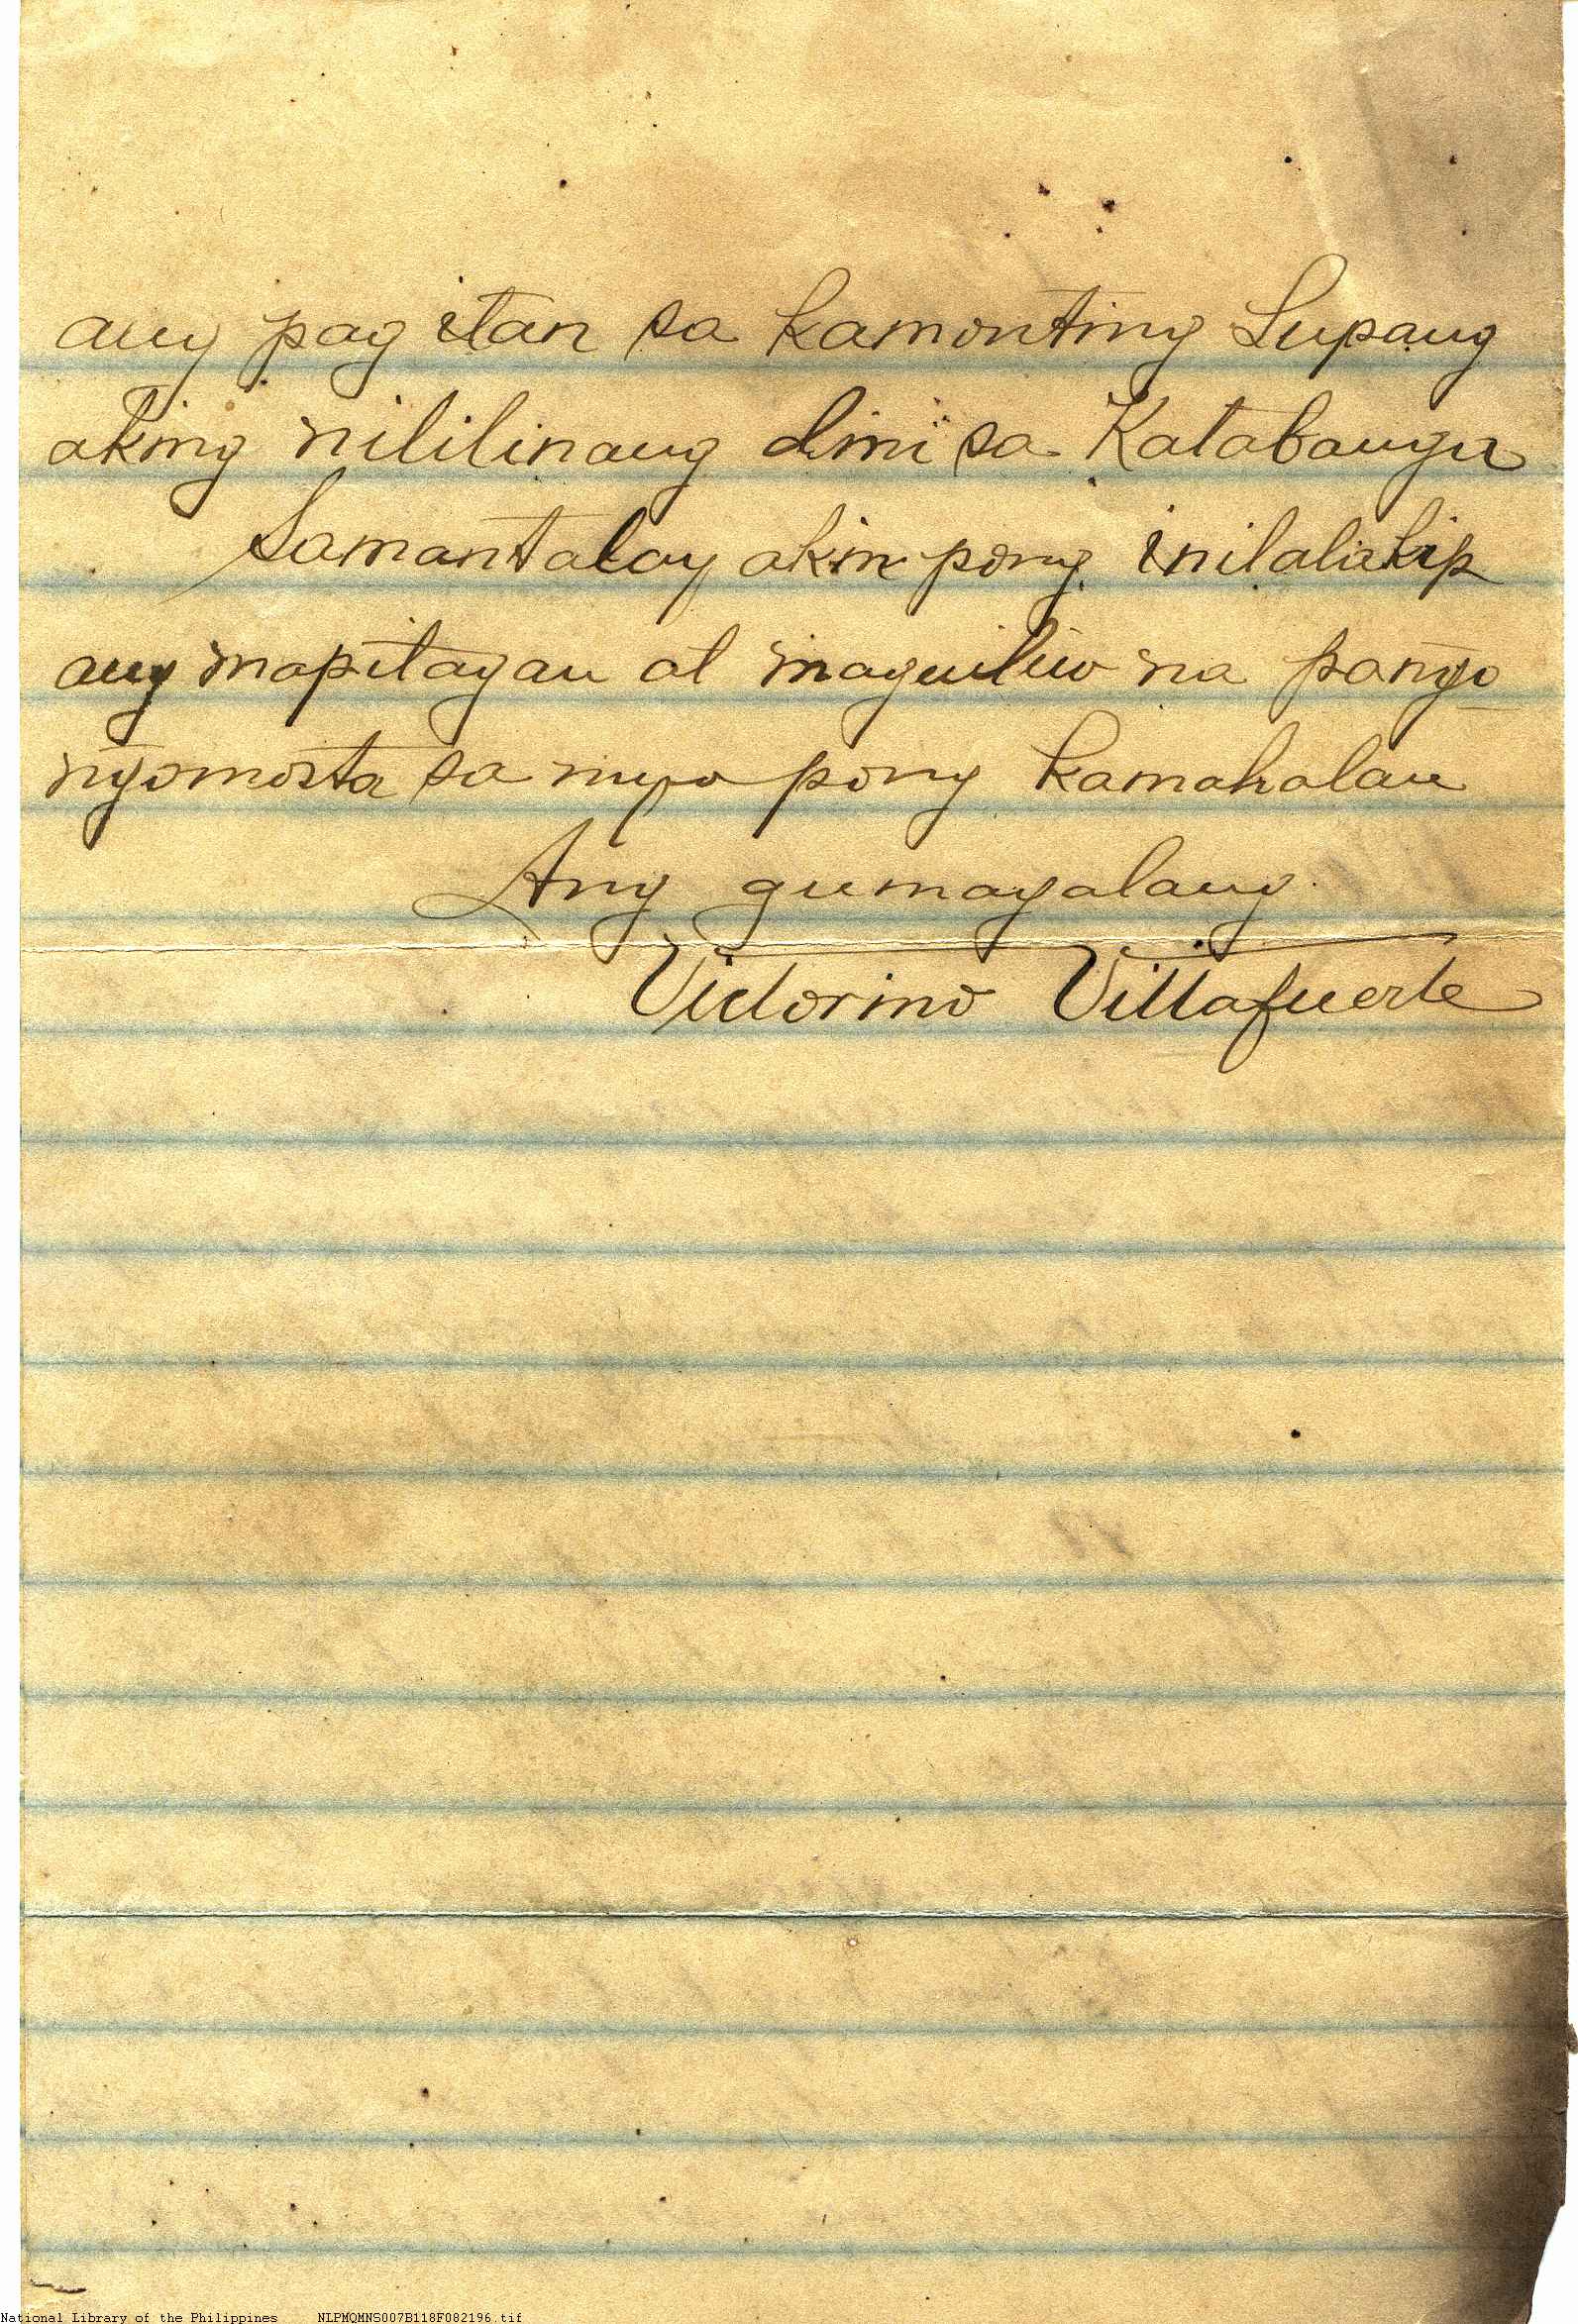 ang pag itan sa kamonting Lupang
aking nililinang dini sa Katabangan
Samantalay akin pong inilalakip
ang mapitagan at maguiliw na panga
ngomosta sa inyo pong kamahalan
Ang gumagalang
Victorino Villafuerte
National Library of the Philippines NLPMQMNS007B118F082196.tif